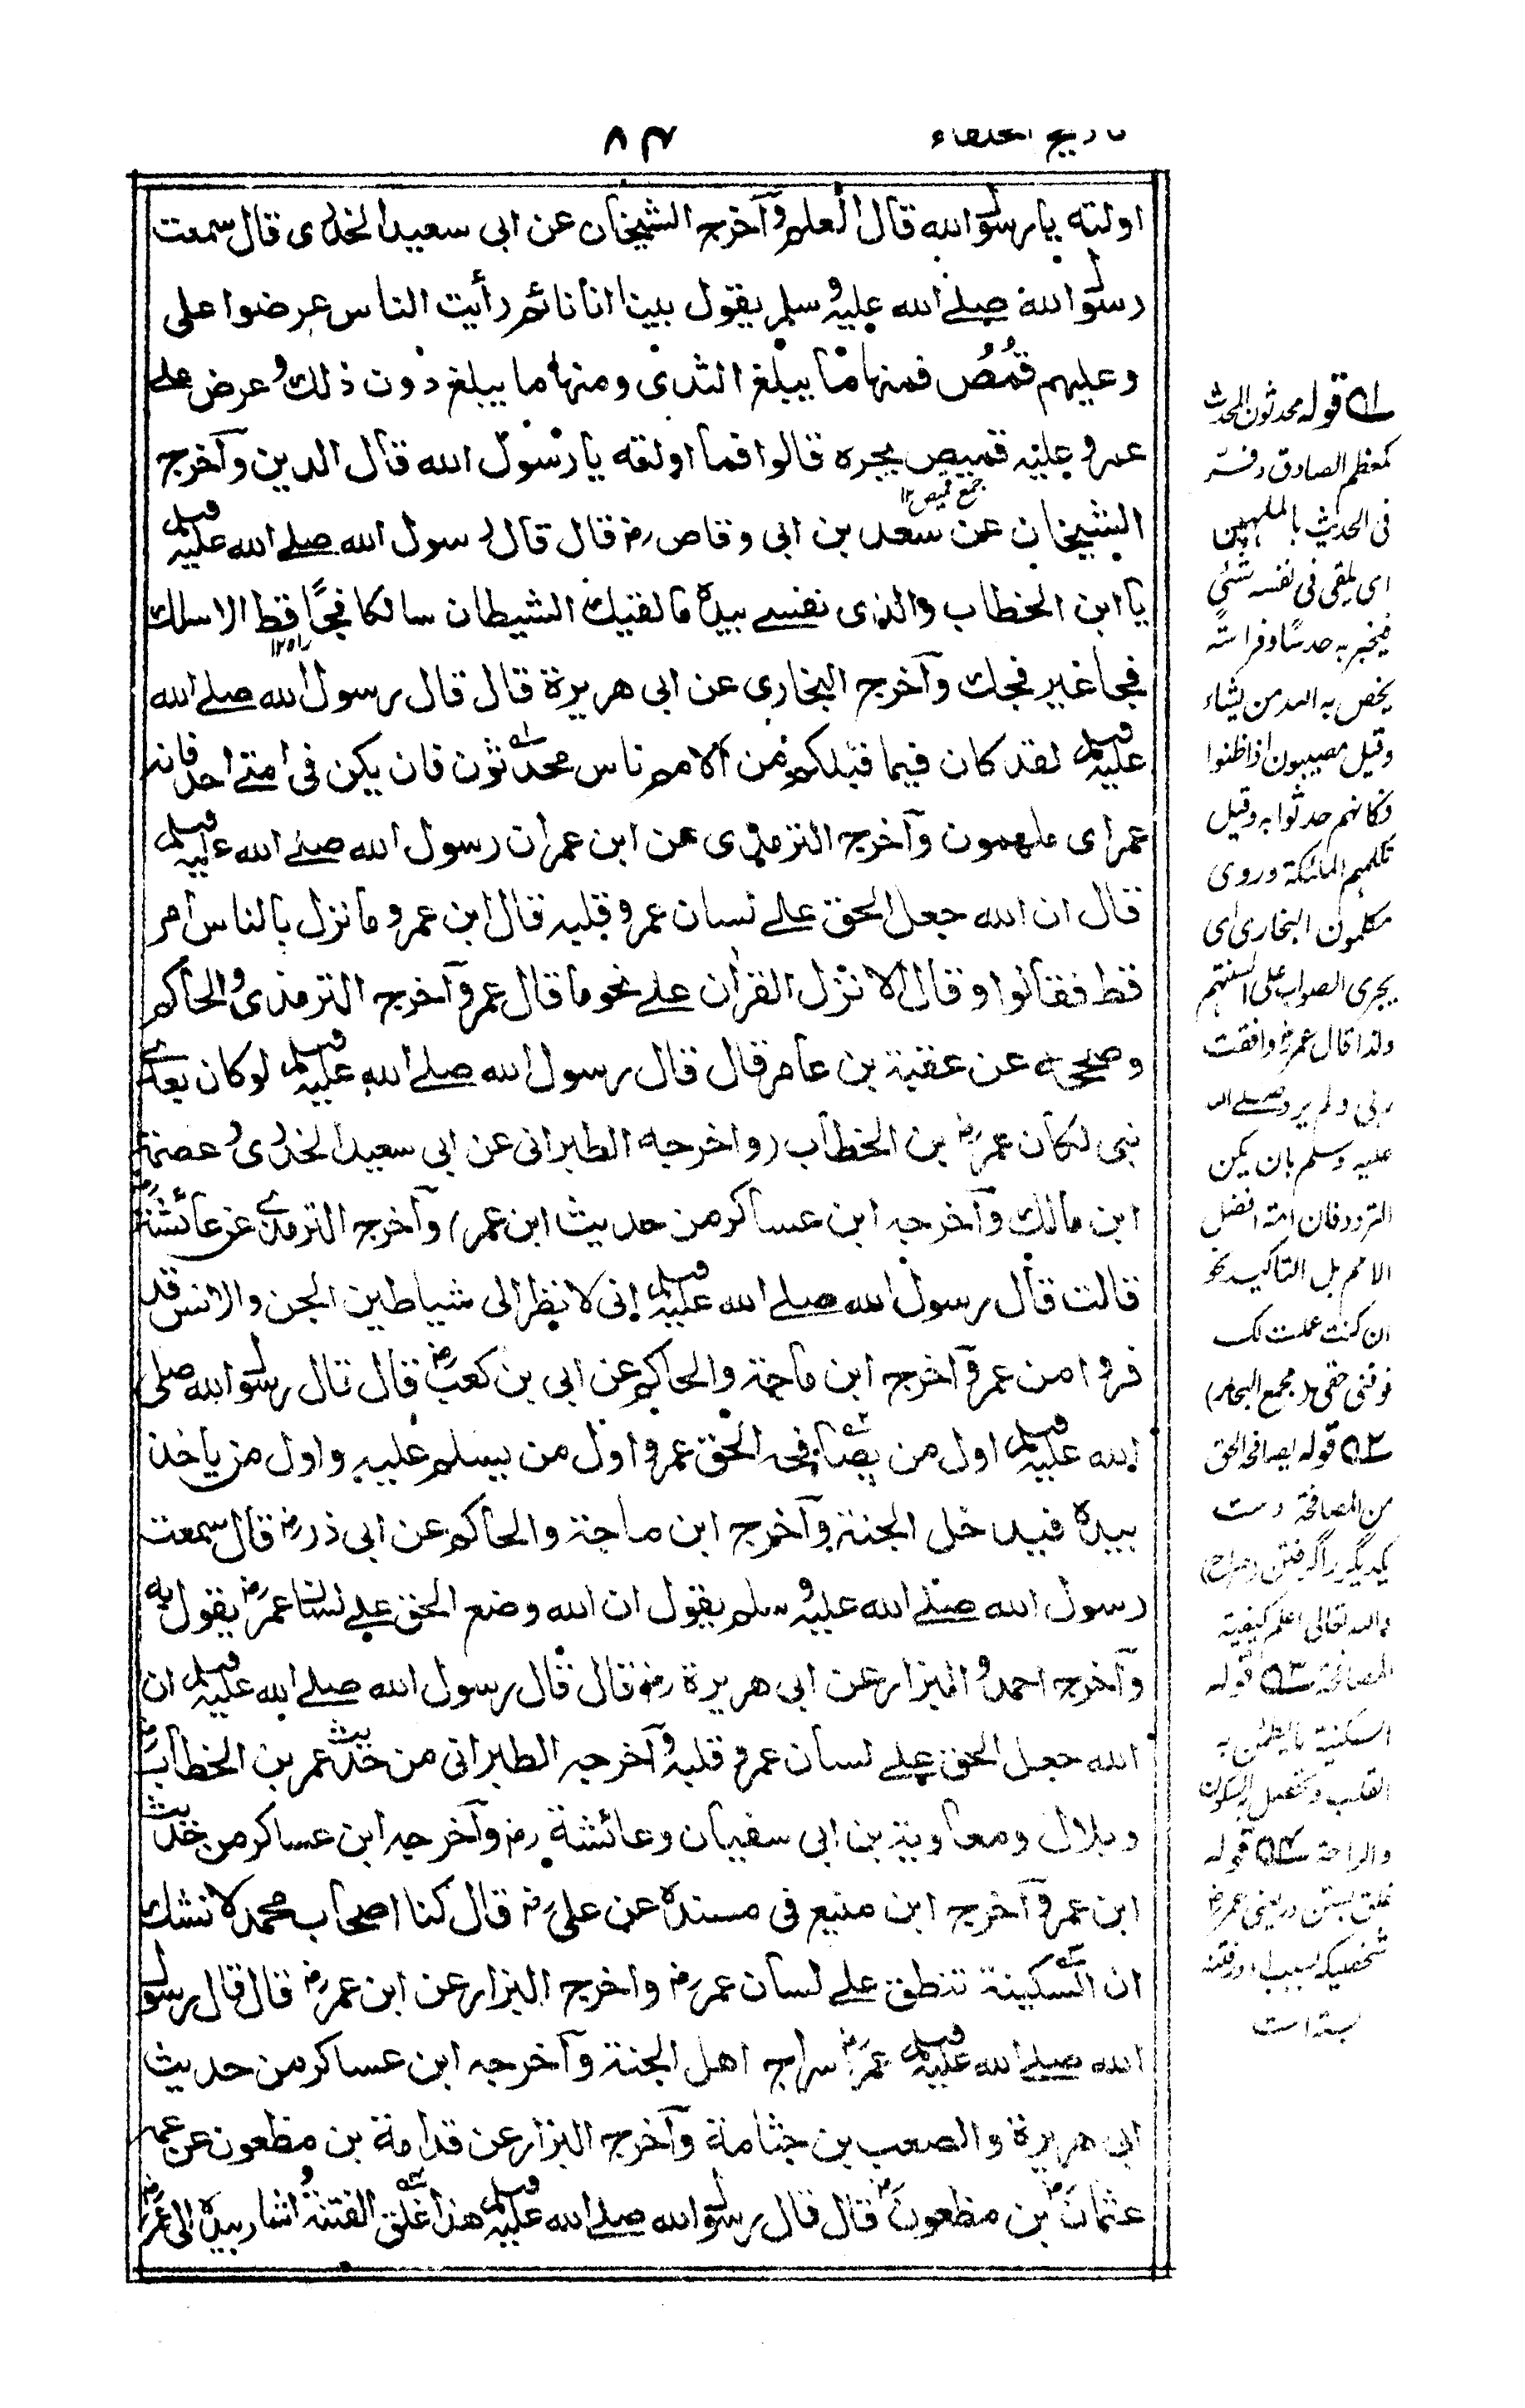 تاريخ الخلفاء
۸۴
اولته يا رسول الله قال العلم وآخرج الشيخان عن ابى سعيد الخدرى قال سمعت
رسول الله صلے الله عليه وسلم يقول بينا انا نائم رأيت الناس عرضوا على
وعليهم قُمُص فمنها ما يبلغ الثدى ومنها ما يبلغ دون ذلك وعرض علے
عمر و عليه قميص يجره قالوا فما اولته يا رسول الله قال الدين وآخرج
جمع قميص ۱۲
الشيخان عن سعد بن ابى وقاص رض قال قال رسول الله صلے الله عليه وسلم
يا ابن الخطاب والذى نفسے بيده ما لقيك الشيطان سالكا فجًا قط الا سلك
راه ۱۲
فجا غير فجك وآخرج البخارى عن ابى هريرة قال قال رسول الله صلے الله
عليه وسلم لقد كان فيما قبلكم من الامم ناس محدثون فان يكن فى امتے احد فانه
عمر اى ملهمون وآخرج الترمذى عن ابن عمر ان رسول الله صلے الله عليه وسلم
قال ان الله جعل الحق علے لسان عمر وقلبه قال ابن عمر وما نزل بالناس امر
قط فقالوا وقال الا نزل القران علے نحو ما قال عمر وآخرج الترمذى والحاكم
وصححه عن عقبة بن عامر قال قال رسول الله صلے الله عليه وسلم لو كان بعدے
نبى لكان عمر رض بن الخطاب (واخرجه الطبرانى عن ابى سعيد الخدرى وعصمة
ابن مالك وآخرجه ابن عساكر من حديث ابن عمر) وآخرج الترمذے عن عائشة رض
قالت قال رسول الله صلے الله عليه وسلم إنى لانظر الى شياطين الجن والانس قد
فروا من عمر وآخرج ابن ماجة والحاكم عن ابى بن كعب رض قال قال رسول الله صلى
الله عليه وسلم اول من يصافحه الحق عمر واول من يسلم عليه واول من ياخذ
بيده فيدخل الجنة وآخرج ابن ماجة والحاكم عن ابى ذر رض قال سمعت
رسول الله صلے الله عليه وسلم يقول ان الله وضع الحق علے لسان عمر رض يقول به
وآخرج احمد والبزار عن ابى هريرة رض قال قال رسول الله صلے الله عليه وسلم ان
الله جعل الحق علے لسان عمر وقلبه وآخرجه الطبرانى من حديث عمر بن الخطاب رض
وبلال ومعاوية بن ابى سفيان وعائشة رض وآخرجه ابن عساكر من حديث
ابن عمر وآخرج ابن منيع فى مسنده عن على رض قال كنا اصحاب محمد لا نشك
ان السكينة تنطق علے لسان عمر رض واخرج البزار عن ابن عمر رض قال قال رسول
الله صلے الله عليه وسلم عمر رض سراج اهل الجنة وآخرجه ابن عساكر من حديث
ابى هريرة والصعب بن جثامة وآخرج البزار عن قدامة بن مظعون عن عمه
عثمان رض بن مظعون رض قال قال رسول الله صلے الله عليه وسلم هذا غلق الفتنة واشار بيده الى عمر رض
۱ے قوله محدثون المحدث
كمعظم الصادق وفسر
فى الحديث بالملهمين
اى يلقى فى نفسه شئ
فيخبر به حدسًا وفراسته
يخص به الله من يشاء
وقيل مصيبون اذا ظنوا
فكانهم حدثوا به وقيل
تكلمهم الملئكة وروى
مكلمون البخارى اى
يجرى الصواب على السنتهم
ولذا قال عمر رض وافقت
ربى ولم يرد صلے الله
عليه وسلم بان يكن
التردد فان امته افضل
الامم بل التاكيد نحو
ان كنت عملت لك
فوفنى حقى (مجمع البحار)
۲ے قوله يصافحه الحق
من المصافحة دست
يكديگر را گرفتن (صراح)
والله تعالى اعلم كيفية
المصافحة ۳ے قوله
السكينة ما يطمئن به
القلب ويحصل به السكون
والراحة ۴ے قوله
غلق بستن در يعنى عمر رض
شخصيكه بسبب او در فتنه
بسته است